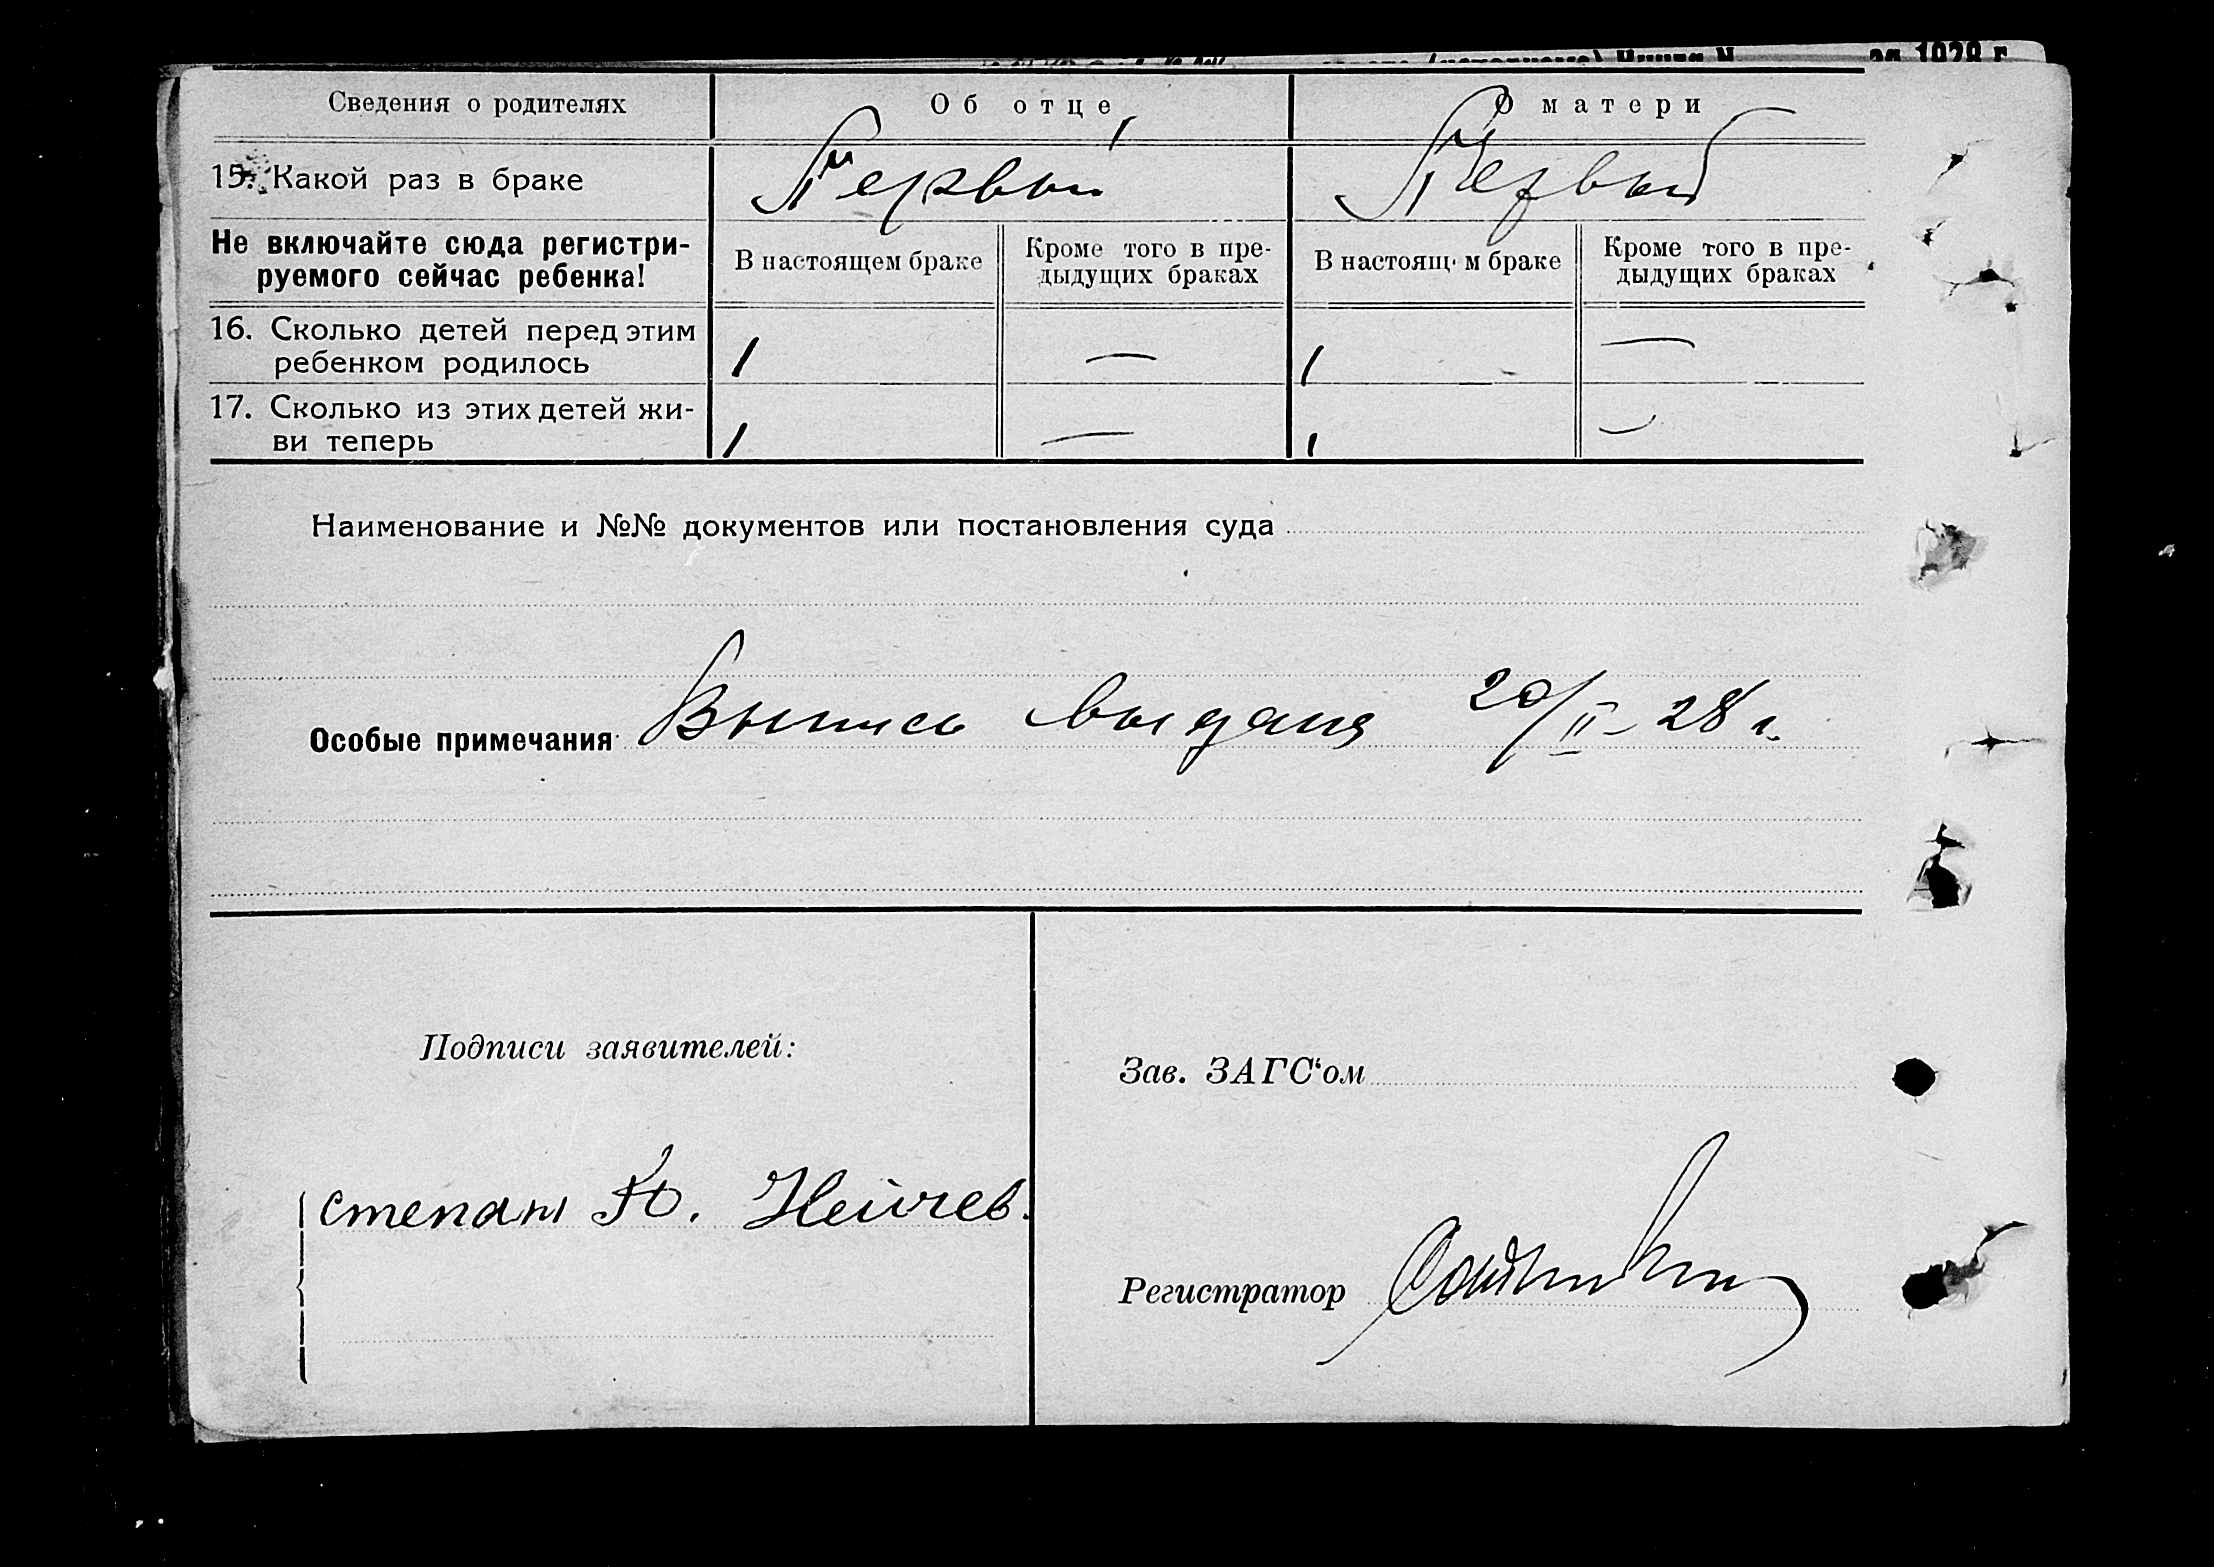 за 1928 г.
Сведения о родителях Об отце О матери
15. Какой раз в браке Первый Первый
Не включайте сюда регистри-
руемого сейчас ребенка!
В настоящем браке
Кроме того в пре-
дыдущих браках
В настоящ м браке
Кроме того в пре-
дыдущих браках
16. Сколько детей перед этим
ребенком родилось
1 — 1 —
17. Сколько из этих детей жи-
ви теперь
1 — 1 —
Наименование и №№ документов или постановления суда
Особые примечания Выпись выдана 20/II-28 г.
Подписи заявителей:
Зав. ЗАГС‘ом
степан Ю. Нейчев.
Регистратор